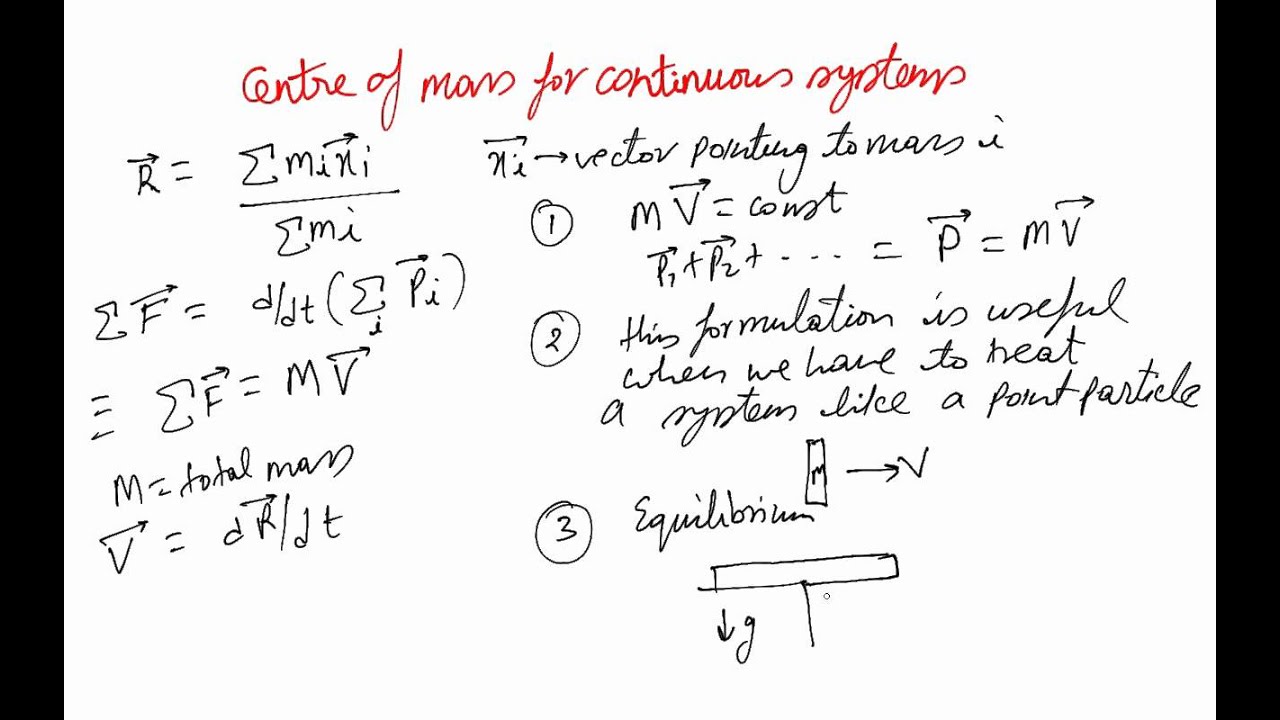 Centre of mass for continuous systems
R⃗ = Σ mᵢx⃗ᵢ / Σ mᵢ
x⃗ᵢ → vector pointing to mass i
① M V⃗ = const
P⃗₁ + P⃗₂ + ---- = P⃗ = M V⃗
Σ F⃗ = d/dt (Σᵢ P⃗ᵢ)
≡ Σ F⃗ = M V⃗
M = total mass
V⃗ = dR⃗/dt
② this formulation is useful
when we have to treat
a system like a point particle
M → V
③ Equilibrium
↓ g